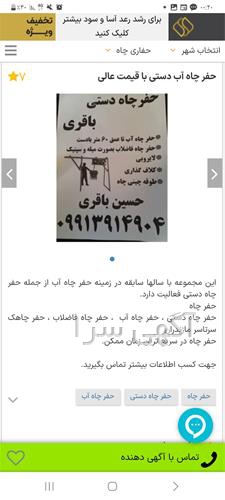 ٪۲۰
۰۰:۲۰
تخفیف
ویژه
برای رشد رعد آسا و سود بیشتر
کلیک کنید
انتخاب شهر
حفاری چاه
حفر چاه آب دستی با قیمت عالی
۷
حفر چاه دستی
باقری
حفر چاه آب تا عمق ۶۰ متر بادست
حفر چاه فاضلاب بصورت میله و سپتیک
لایروبی
کلاف گذاری
طوقه چینی چاه
حسین باقری
۰۹۹۱۳۹۱۴۹۰۴
این مجموعه با سالها سابقه در زمینه حفر چاه آب از جمله حفر
چاه دستی فعالیت دارد.
حفر چاه
حفر چاه دستی ، حفر چاه آب ، حفر چاه فاضلاب ، حفر چاهک
سرتاسر مازندران
حفر چاه در سریع ترین زمان ممکن.
آگهی سرا
جهت کسب اطلاعات بیشتر تماس بگیرید.
حفر چاه
حفر چاه دستی
حفر چاه آب
تماس با آگهی دهنده